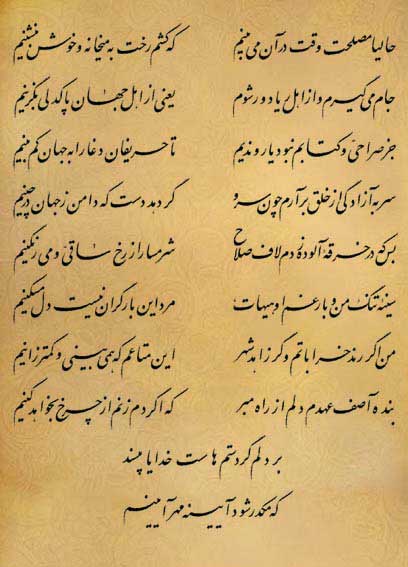 حالیا مصلحت وقت در آن می بینم که کشم رخت به میخانه و خوش بنشینم
جام می گیرم و از اهل ریا دور شوم یعنی از اهل جهان پاکدلی بگزینم
جز صراحی و کتابم نبود یار و ندیم تا حریفان دغا را به جهان کم بینم
سر به آزادگی از خلق برآرم چون سرو گر دهد دست که دامن ز جهان درچینم
بس که در خرقه آلوده زدم لاف صلاح شرمسار از رخ ساقی و می رنگینم
سینه تنگ من و بار غم او هیهات مرد این بار گران نیست دل مسکینم
من اگر رند خراباتم و گر زاهد شهر این متاعم که همی بینی و کمتر زینم
بنده آصف عهدم دلم از راه مبر که اگر دم زنم از چرخ بخواهد کینم
بر دلم گرد ستم هاست خدایا مپسند
که مکدر شود آیینه مهر آیینم